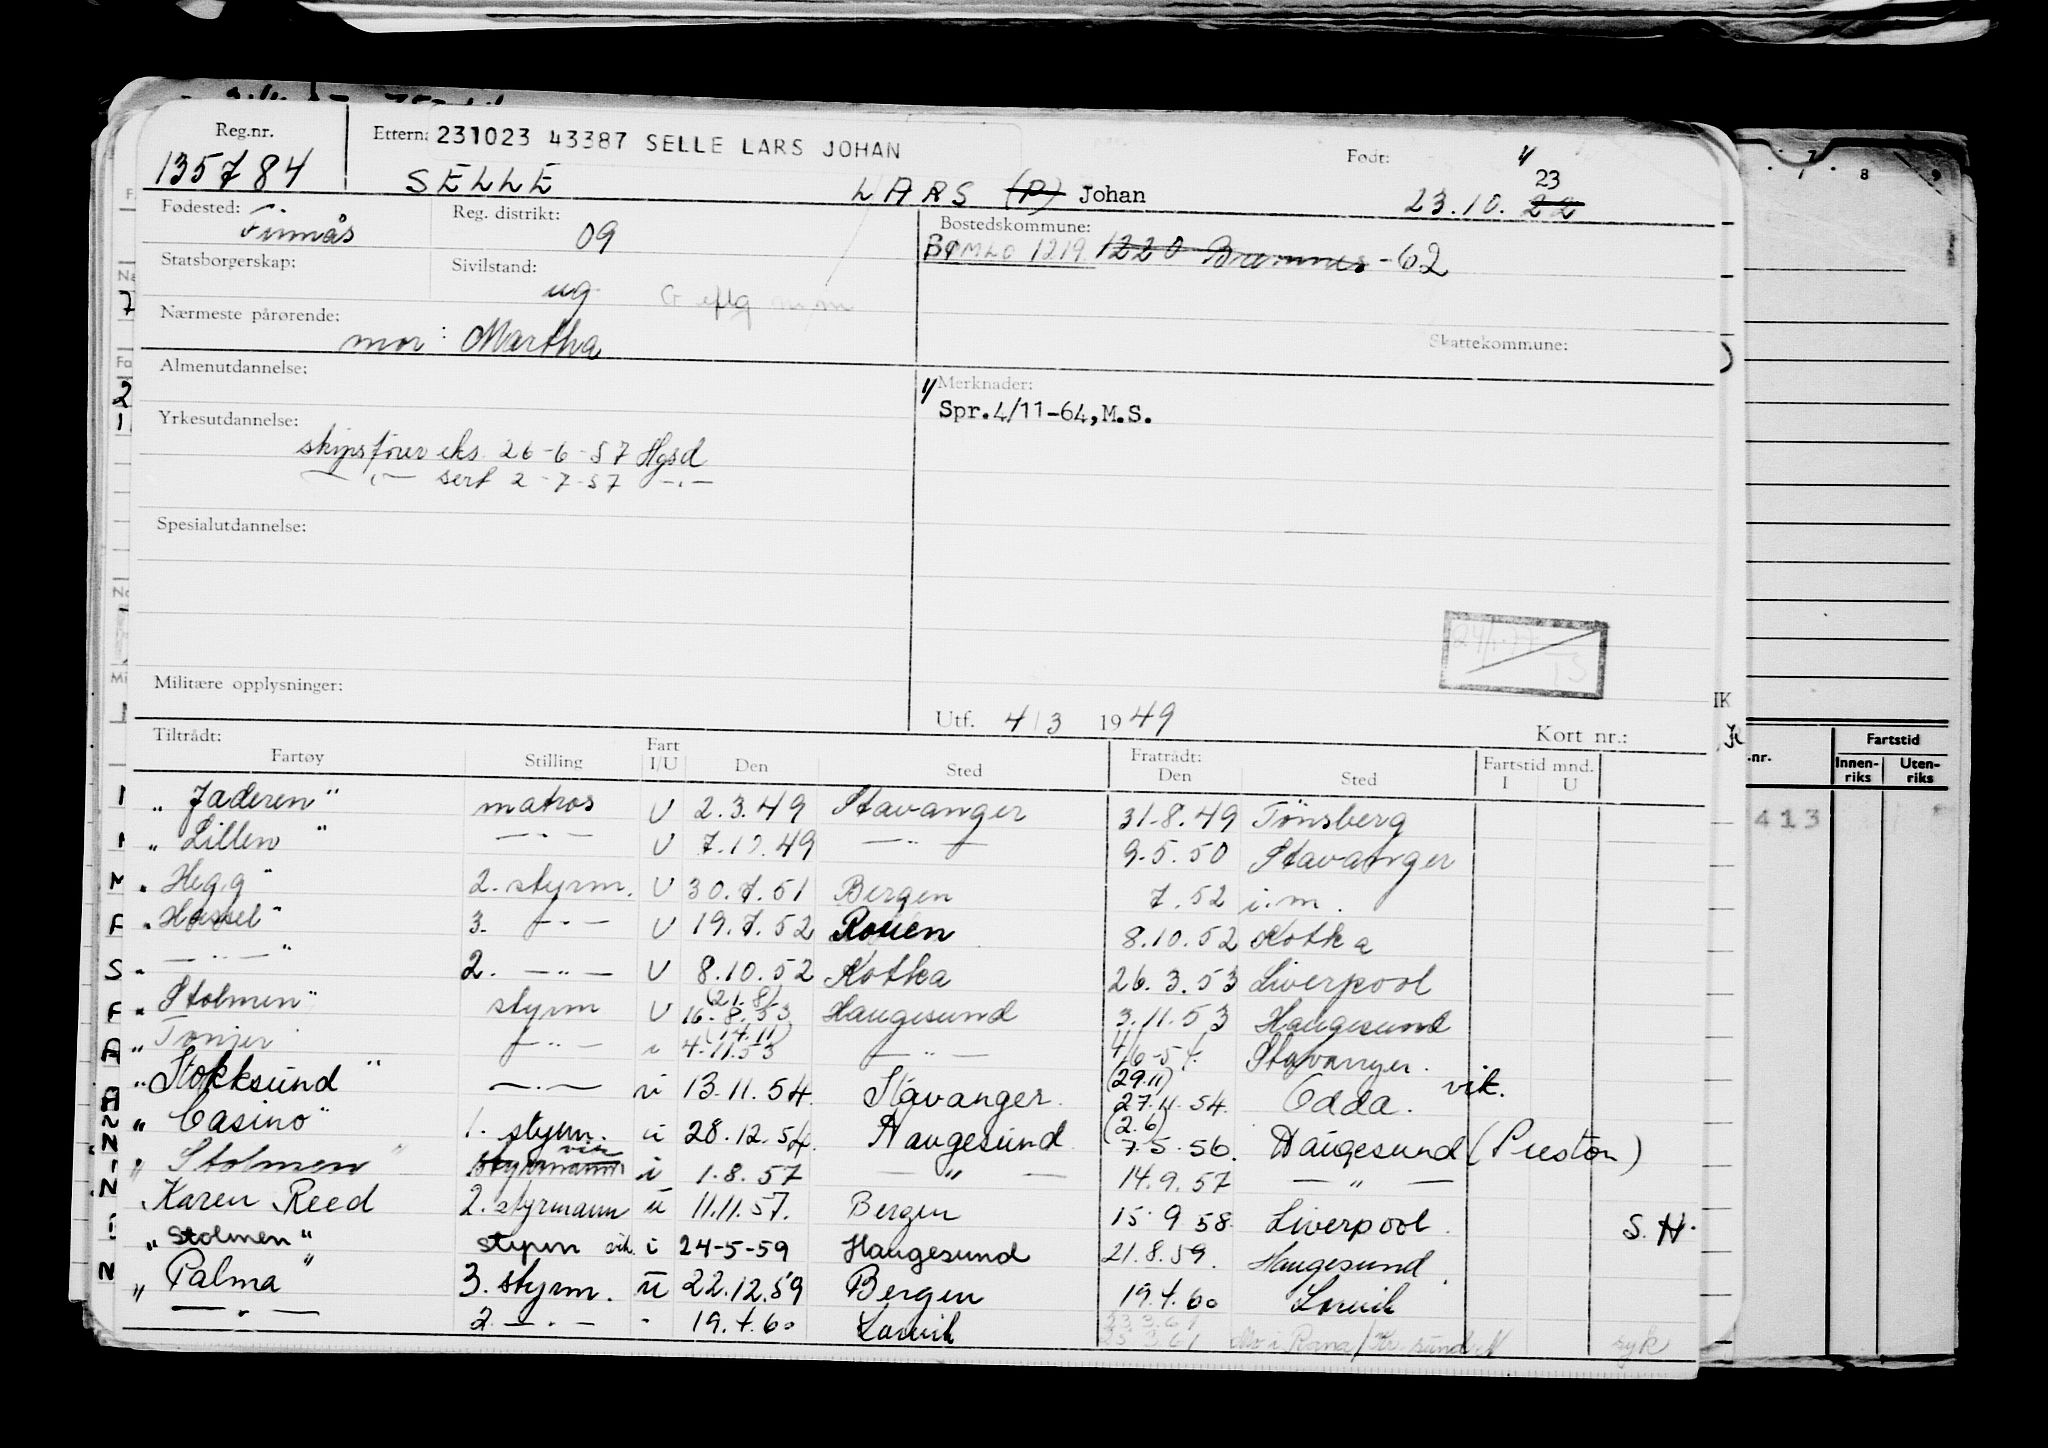 Reg.nr. Ettern: 231023 43387 SELLE LARS JOHAN Født: 23
135784 SELLE LARS (P) Johan 23.10. 22
Fødested: Finnås Reg. distrikt: 09 Bostedskommune: BØMLO 1219 1220 Bremnes -62
Statsborgerskap: Sivilstand: ug G eflg
Nærmeste pårørende: mor: Martha Skattekommune:
Almenutdannelse: Merknader:
Spr.4/11-64,M.S.
Yrkesutdannelse: skipsfører eks. 26-6-57 Hgsd
— " — sert 2-7-57 — " —
Spesialutdannelse:
Militære opplysninger:
Utf. 4/3 1949 Kort nr.:
Tiltrådt: Fratrådt: Fartstid mnd.
Fartøy Stilling Fart I/U Den Sted Den Sted I U
"Jaderen" matros U 2.3.49 Stavanger 31.8.49 Tönsberg
"Lillen" — " — U 7.10.49 — " — 9.5.50 Stavanger
"Hegg" 2. styrm. U 30.7.51 Bergen 7.52 i.m.
"Hassel" 3. — " — U 19.7.52 Rouen 8.10.52 Kotka
" — " — " 2. — " — U 8.10.52 Kotka 26.3.53 Liverpool
"Stolmen" styrm U (21.8) 16.8.53 Haugesund 3.11.53 Haugesund
"Tonjer — " — i (14.11) 4.11.53 — " — 4/6-54. Stavanger.
"Stokksund" — " — i 13.11.54. Stavanger. (29.11) 27.11.54. Odda. vik.
"Casino" 1. styrm. i 28.12.54. Haugesund (2.6) 7.5.56. Haugesund (Preston)
"Stolmen" styrmann vik i 1.8.57 — " — 14.9.57 — " —
"Karen Reed 2. styrmann u 11.11.57. Bergen 15.9.58. Liverpool. S.H.
"Stolmen" vik. i 24-5-59 Haugesund 21.8.59. Haugesund.
"Palma" 3. styrm. u 22.12.59 Bergen 19.4.60 Larvik
— " — 2. — " — " 19.4.60 Larvik 23.3.61 Mo i Rana/Kr.sund N syk
.nr. Fartstid
Innen-riks Uten-riks
413
7 8 9